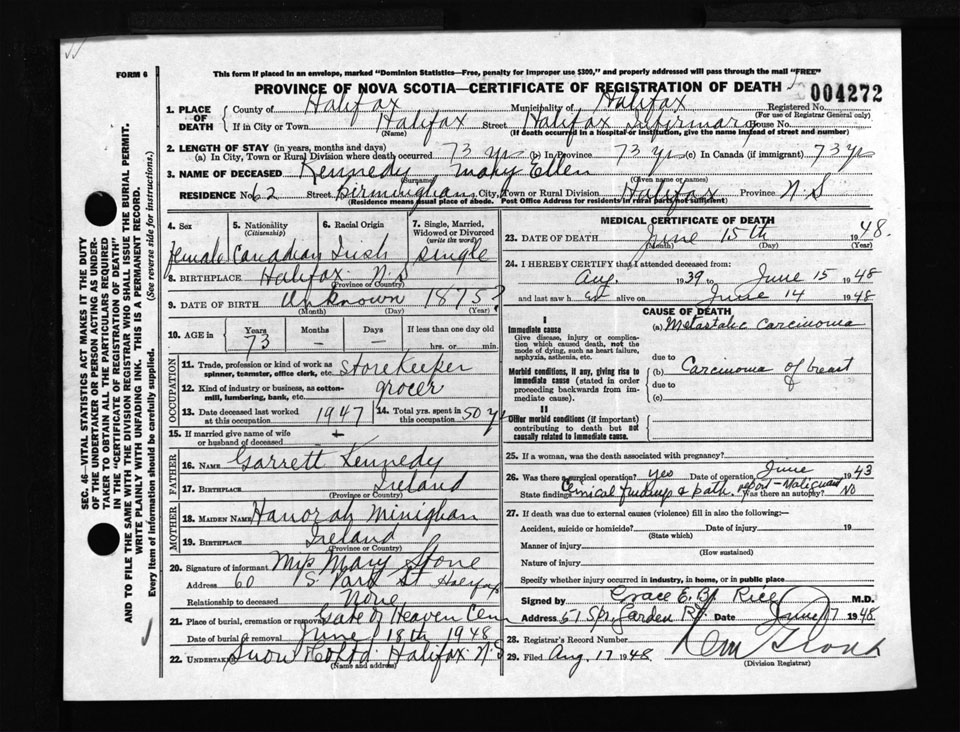 FORM 6
This form if placed in an envelope, marked "Dominion Statistics—Free, penalty for improper use $300," and properly addressed will pass through the mail "FREE"
PROVINCE OF NOVA SCOTIA—CERTIFICATE OF REGISTRATION OF DEATH
004272
SEC. 46—VITAL STATISTICS ACT MAKES IT THE DUTY OF THE UNDERTAKER OR PERSON ACTING AS UNDERTAKER TO OBTAIN ALL THE PARTICULARS REQUIRED IN THE "CERTIFICATE OF REGISTRATION OF DEATH" AND TO FILE THE SAME WITH THE DIVISION REGISTRAR WHO SHALL ISSUE THE BURIAL PERMIT.
WRITE PLAINLY WITH UNFADING INK. THIS IS A PERMANENT RECORD.
Every item of information should be carefully supplied. (See reverse side for instructions.)
1. PLACE OF DEATH County of Halifax Municipality of Halifax Registered No.
(For use of Registrar General only)
If in City or Town Halifax Street Halifax Infirmary House No.
(Name) (If death occurred in a hospital or institution, give the name instead of street and number)
2. LENGTH OF STAY (in years, months and days)
(a) In City, Town or Rural Division where death occurred 73 yrs (b) In Province 73 yrs (c) In Canada (if immigrant) 73 yrs
3. NAME OF DECEASED Kennedy Mary Ellen
(Surname) (Given name or names)
RESIDENCE No. 62 Street Birmingham City, Town or Rural Division Halifax Province N.S
(Residence means usual place of abode. Post Office Address for residents in rural parts not sufficient)
4. Sex
female
5. Nationality (Citizenship)
Canadian
6. Racial Origin
Irish
7. Single, Married, Widowed or Divorced (write the word)
Single
8. BIRTHPLACE Halifax N.S
(Province or Country)
9. DATE OF BIRTH Unknown 1875?
(Month) (Day) (Year)
10. AGE in Years Months Days If less than one day old
73 — — hrs. or min.
OCCUPATION
11. Trade, profession or kind of work as spinner, teamster, office clerk, etc. Storekeeper
12. Kind of industry or business, as cotton-mill, lumbering, bank, etc. grocer
13. Date deceased last worked at this occupation 1947
14. Total yrs. spent in this occupation 50 yrs
15. If married give name of wife or husband of deceased
FATHER
16. NAME Garrett Kennedy
17. BIRTHPLACE Ireland
(Province or Country)
MOTHER
18. MAIDEN NAME Hanorah Minighan
19. BIRTHPLACE Ireland
(Province or Country)
20. Signature of informant Mary Stone
Address 60 S. Park St Halifax
Relationship to deceased None
21. Place of burial, cremation or removal Gate of Heaven Cem
Date of burial or removal June 18th 1948
22. Undertaker Snow Halifax N.S
(Name and address)
MEDICAL CERTIFICATE OF DEATH
23. DATE OF DEATH June 15th 1948.
(Month) (Day) (Year)
24. I HEREBY CERTIFY that I attended deceased from:
Aug. 1939 to June 15 1948
and last saw her alive on June 14 1948
CAUSE OF DEATH
I
Immediate cause
Give disease, injury or complication which caused death, not the mode of dying, such as heart failure, asphyxia, asthenia, etc.
(a) Metastatic Carcinoma
due to
Morbid conditions, if any, giving rise to immediate cause (stated in order proceeding backwards from immediate cause).
(b) Carcinoma of breast
due to
(c)
II
Other morbid conditions (if important) contributing to death but not causally related to immediate cause.
25. If a woman, was the death associated with pregnancy?
26. Was there a surgical operation? yes Date of operation June 1943
State findings Clinical findings & path. report - Malignant Was there an autopsy? No
27. If death was due to external causes (violence) fill in also the following:—
Accident, suicide or homicide? Date of injury 19
(State which)
Manner of injury
(How sustained)
Nature of injury
Specify whether injury occurred in industry, in home, or in public place
Signed by Grace E. B. Rice M.D.
Address 51 Spr. Garden Rd. Date June 17 1948
28. Registrar's Record Number
29. Filed Aug. 17 1948
(Division Registrar)